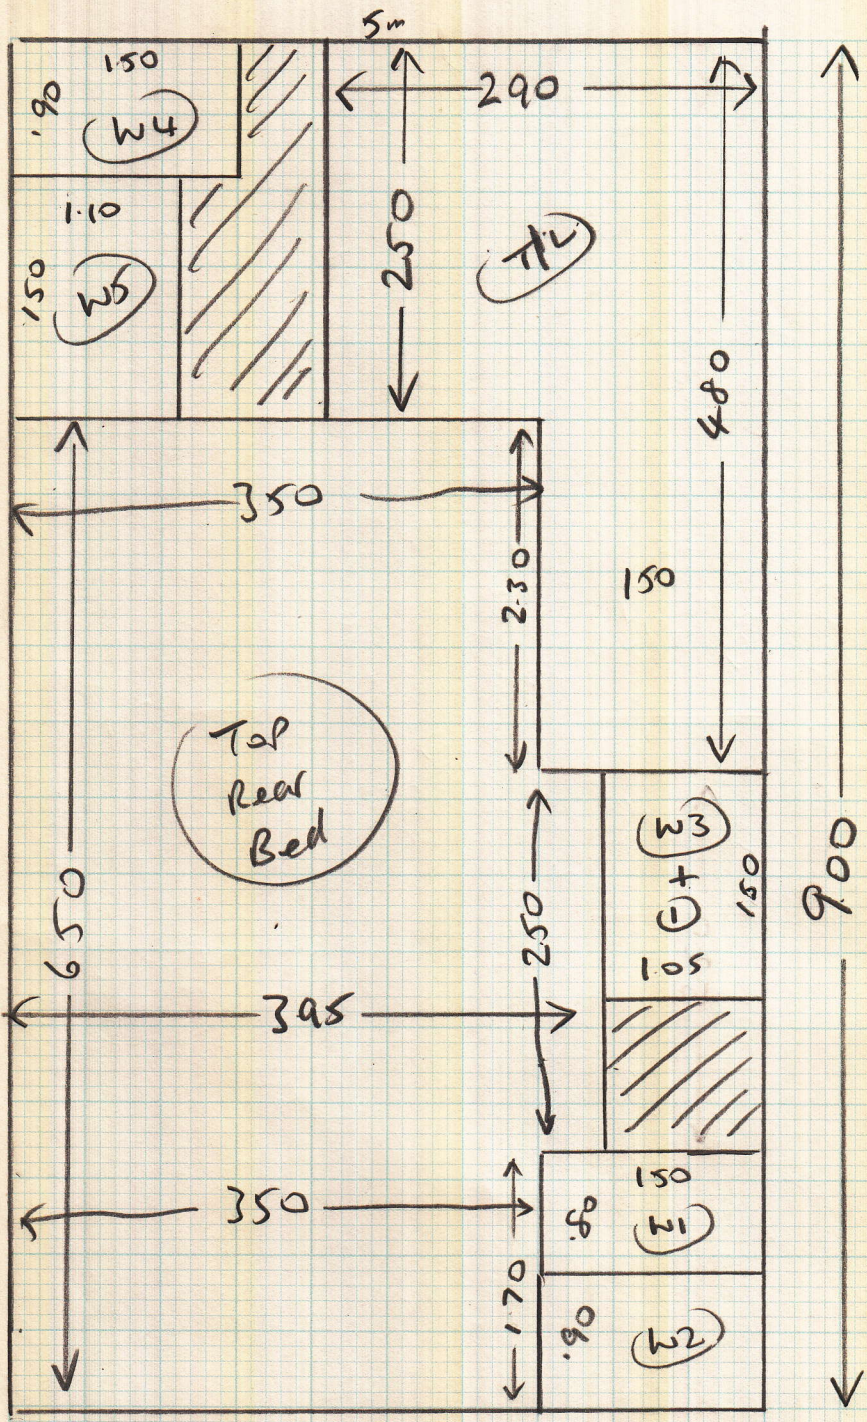 5m
1.50
.90
W4
290
1.10
150
W5
250
T/L
480
350
2.30
150
Top
Rear
Bed
W3
+
1
150
1.05
250
650
900
395
150
.80
W1
350
1.70
.90
W2